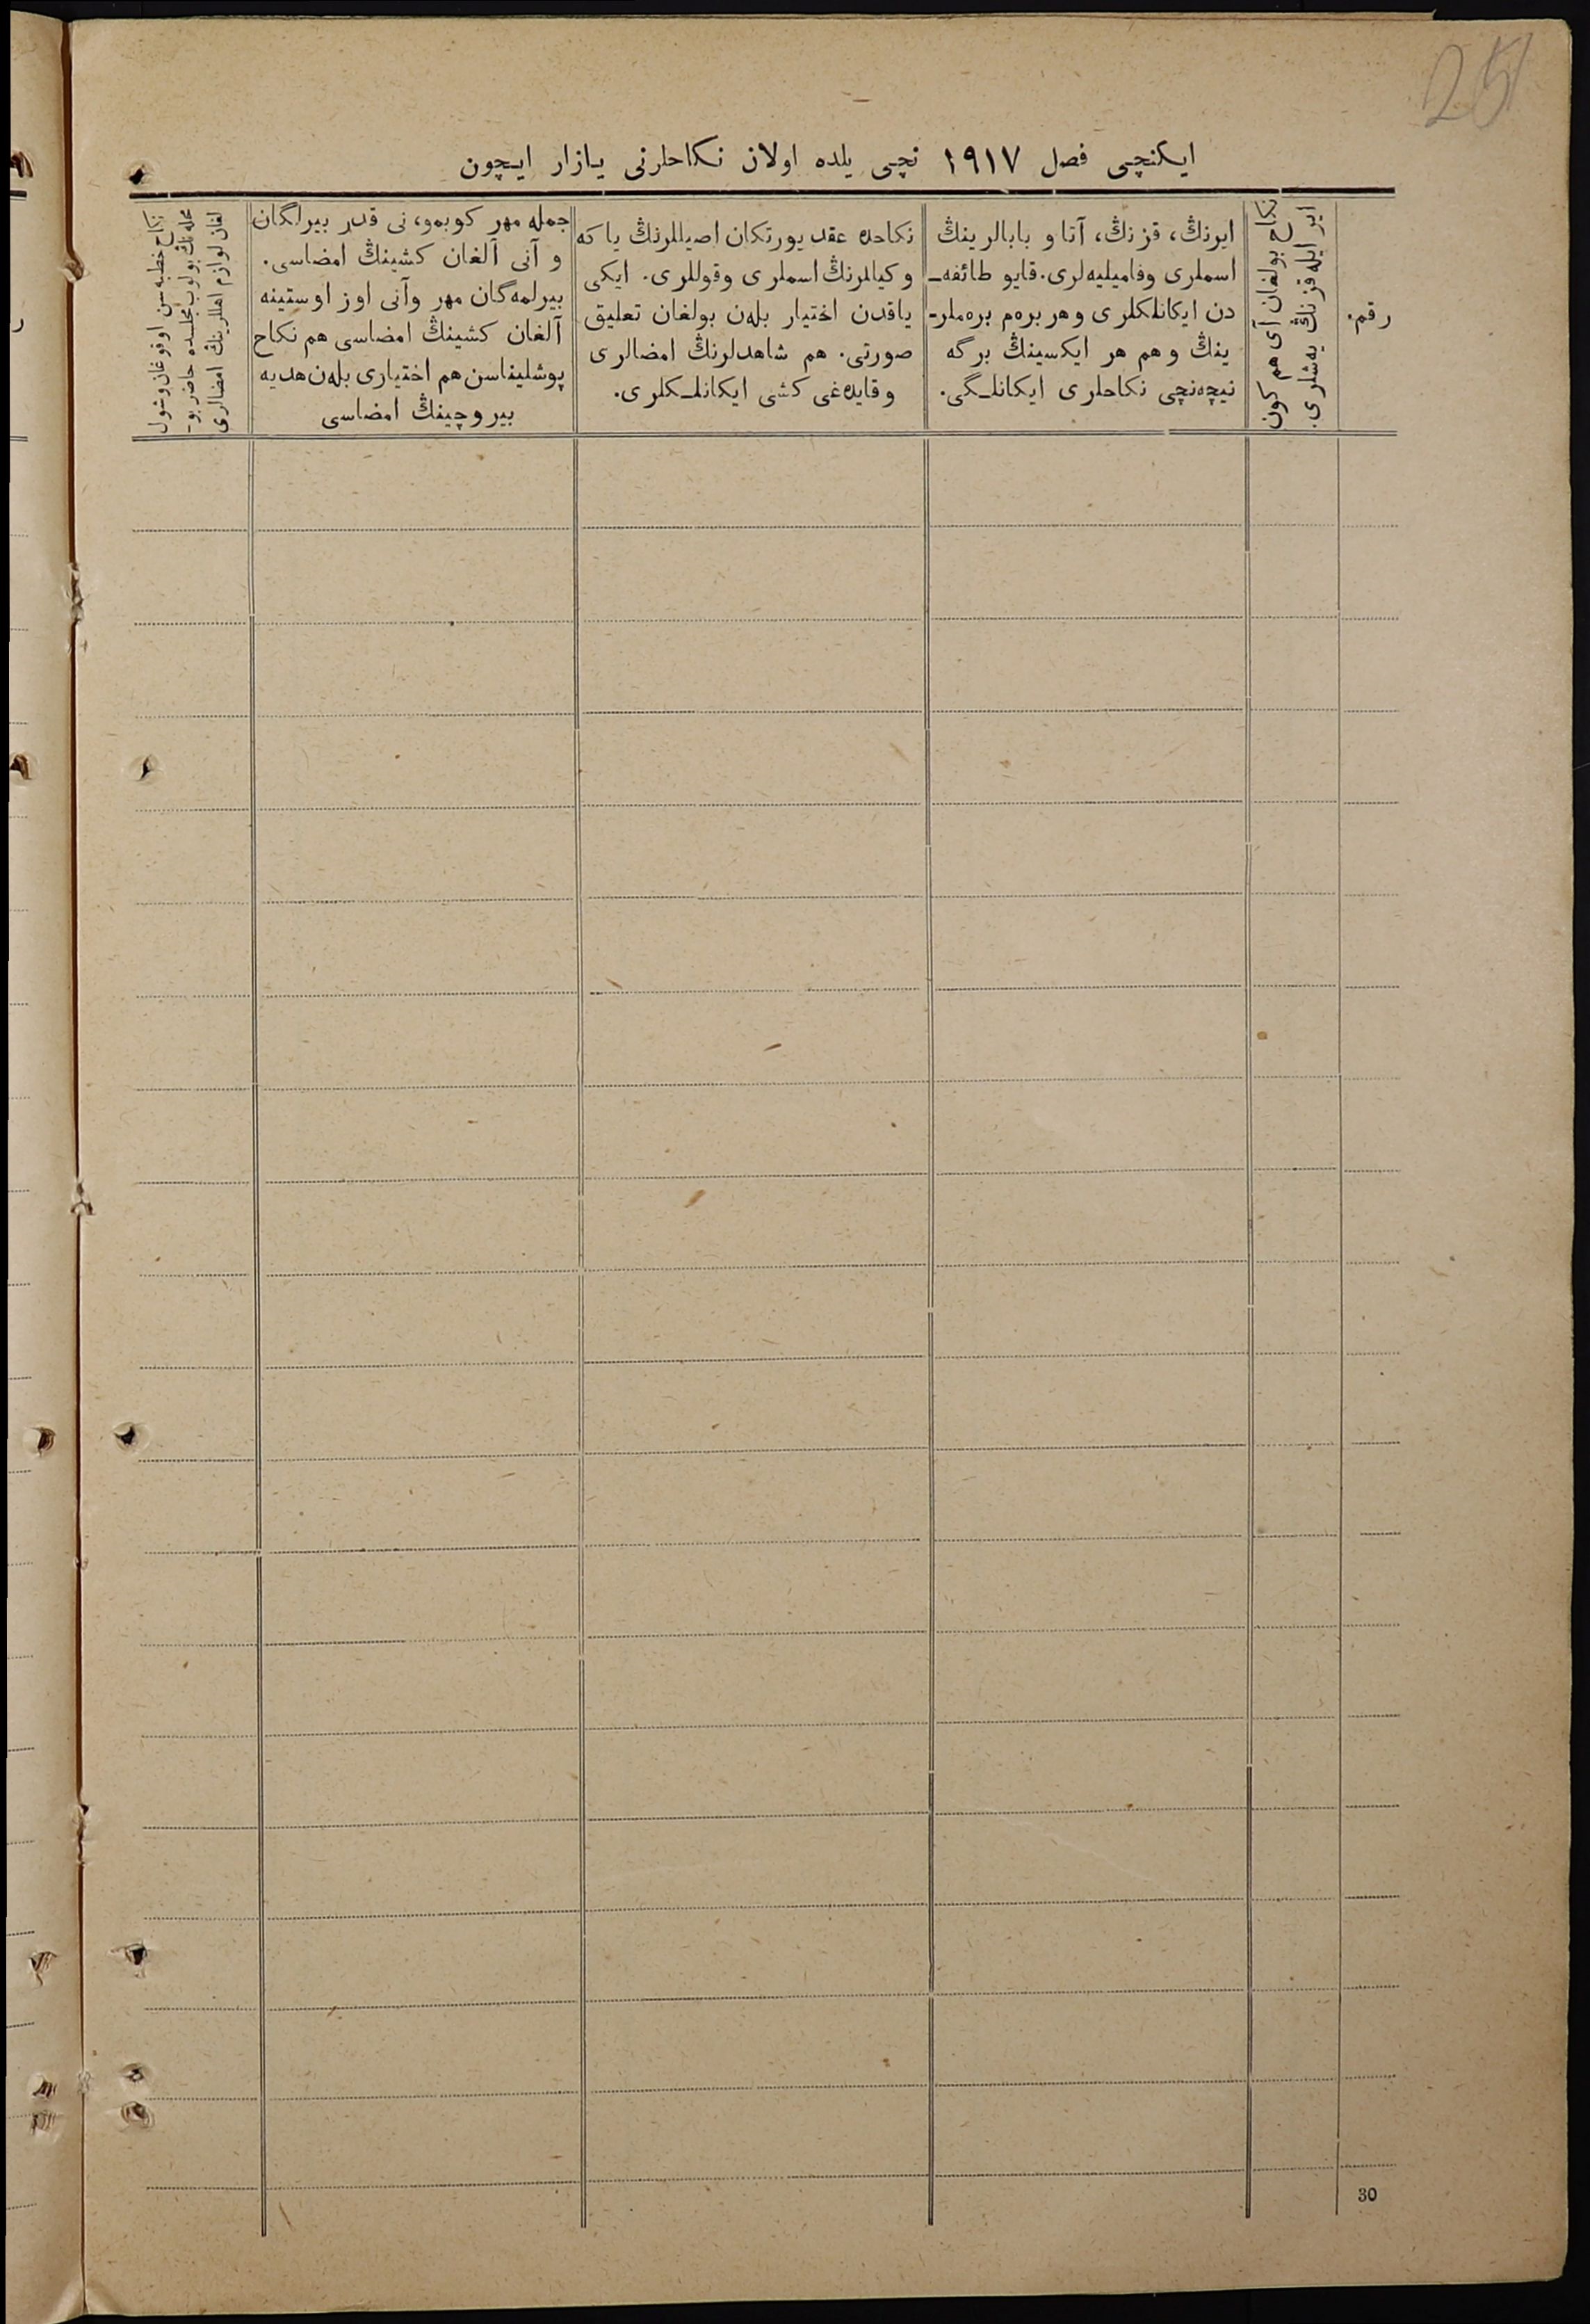 25
ایکنچی فصل ١٩١٧ نچی یلده اولان نکاحلرنی یازار ایچون
رقم.
نکاح بولغان آی هم کون
ایر ایله قزنڭ یه‌شلری.
ایرنڭ، قزنڭ، آتا و بابالرینڭ
اسملری وفامیلیه‌لری. قایو طائفه‌ـ
دن ایکانلکلری وهر بره‌م بره‌ملرـ
ینڭ وهم هر ایکسینڭ برگه
نیچه‌نچی نکاحلری ایکانلـگی.
نکاحده عقد یورتکان اصیللرنڭ یا که
وکیاللرنڭ اسملری وقوللری. ایکی
یاقدن اختیار بله‌ن بولغان تعلیق
صورتی. هم شاهدلرنڭ امضالری
وقایده‌غی کشی ایکانلـکلری.
جمله مهر کوبمو، نی قدر بیرلگان
و آنی آلغان کشینڭ امضاسی.
بیرلمه‌گان مهر وآنی اوز اوستینه
آلغان کشینڭ امضاسی هم نکاح
پوشلیناسن هم اختیاری بله‌ن هدیه
بیروچینڭ امضاسی
نکاح خطبه‌سن اوقوغان وشول
محله‌نڭ بولوب مجلسده حاضر بوـ
لغان لوازم اهللرینڭ امضالری
30